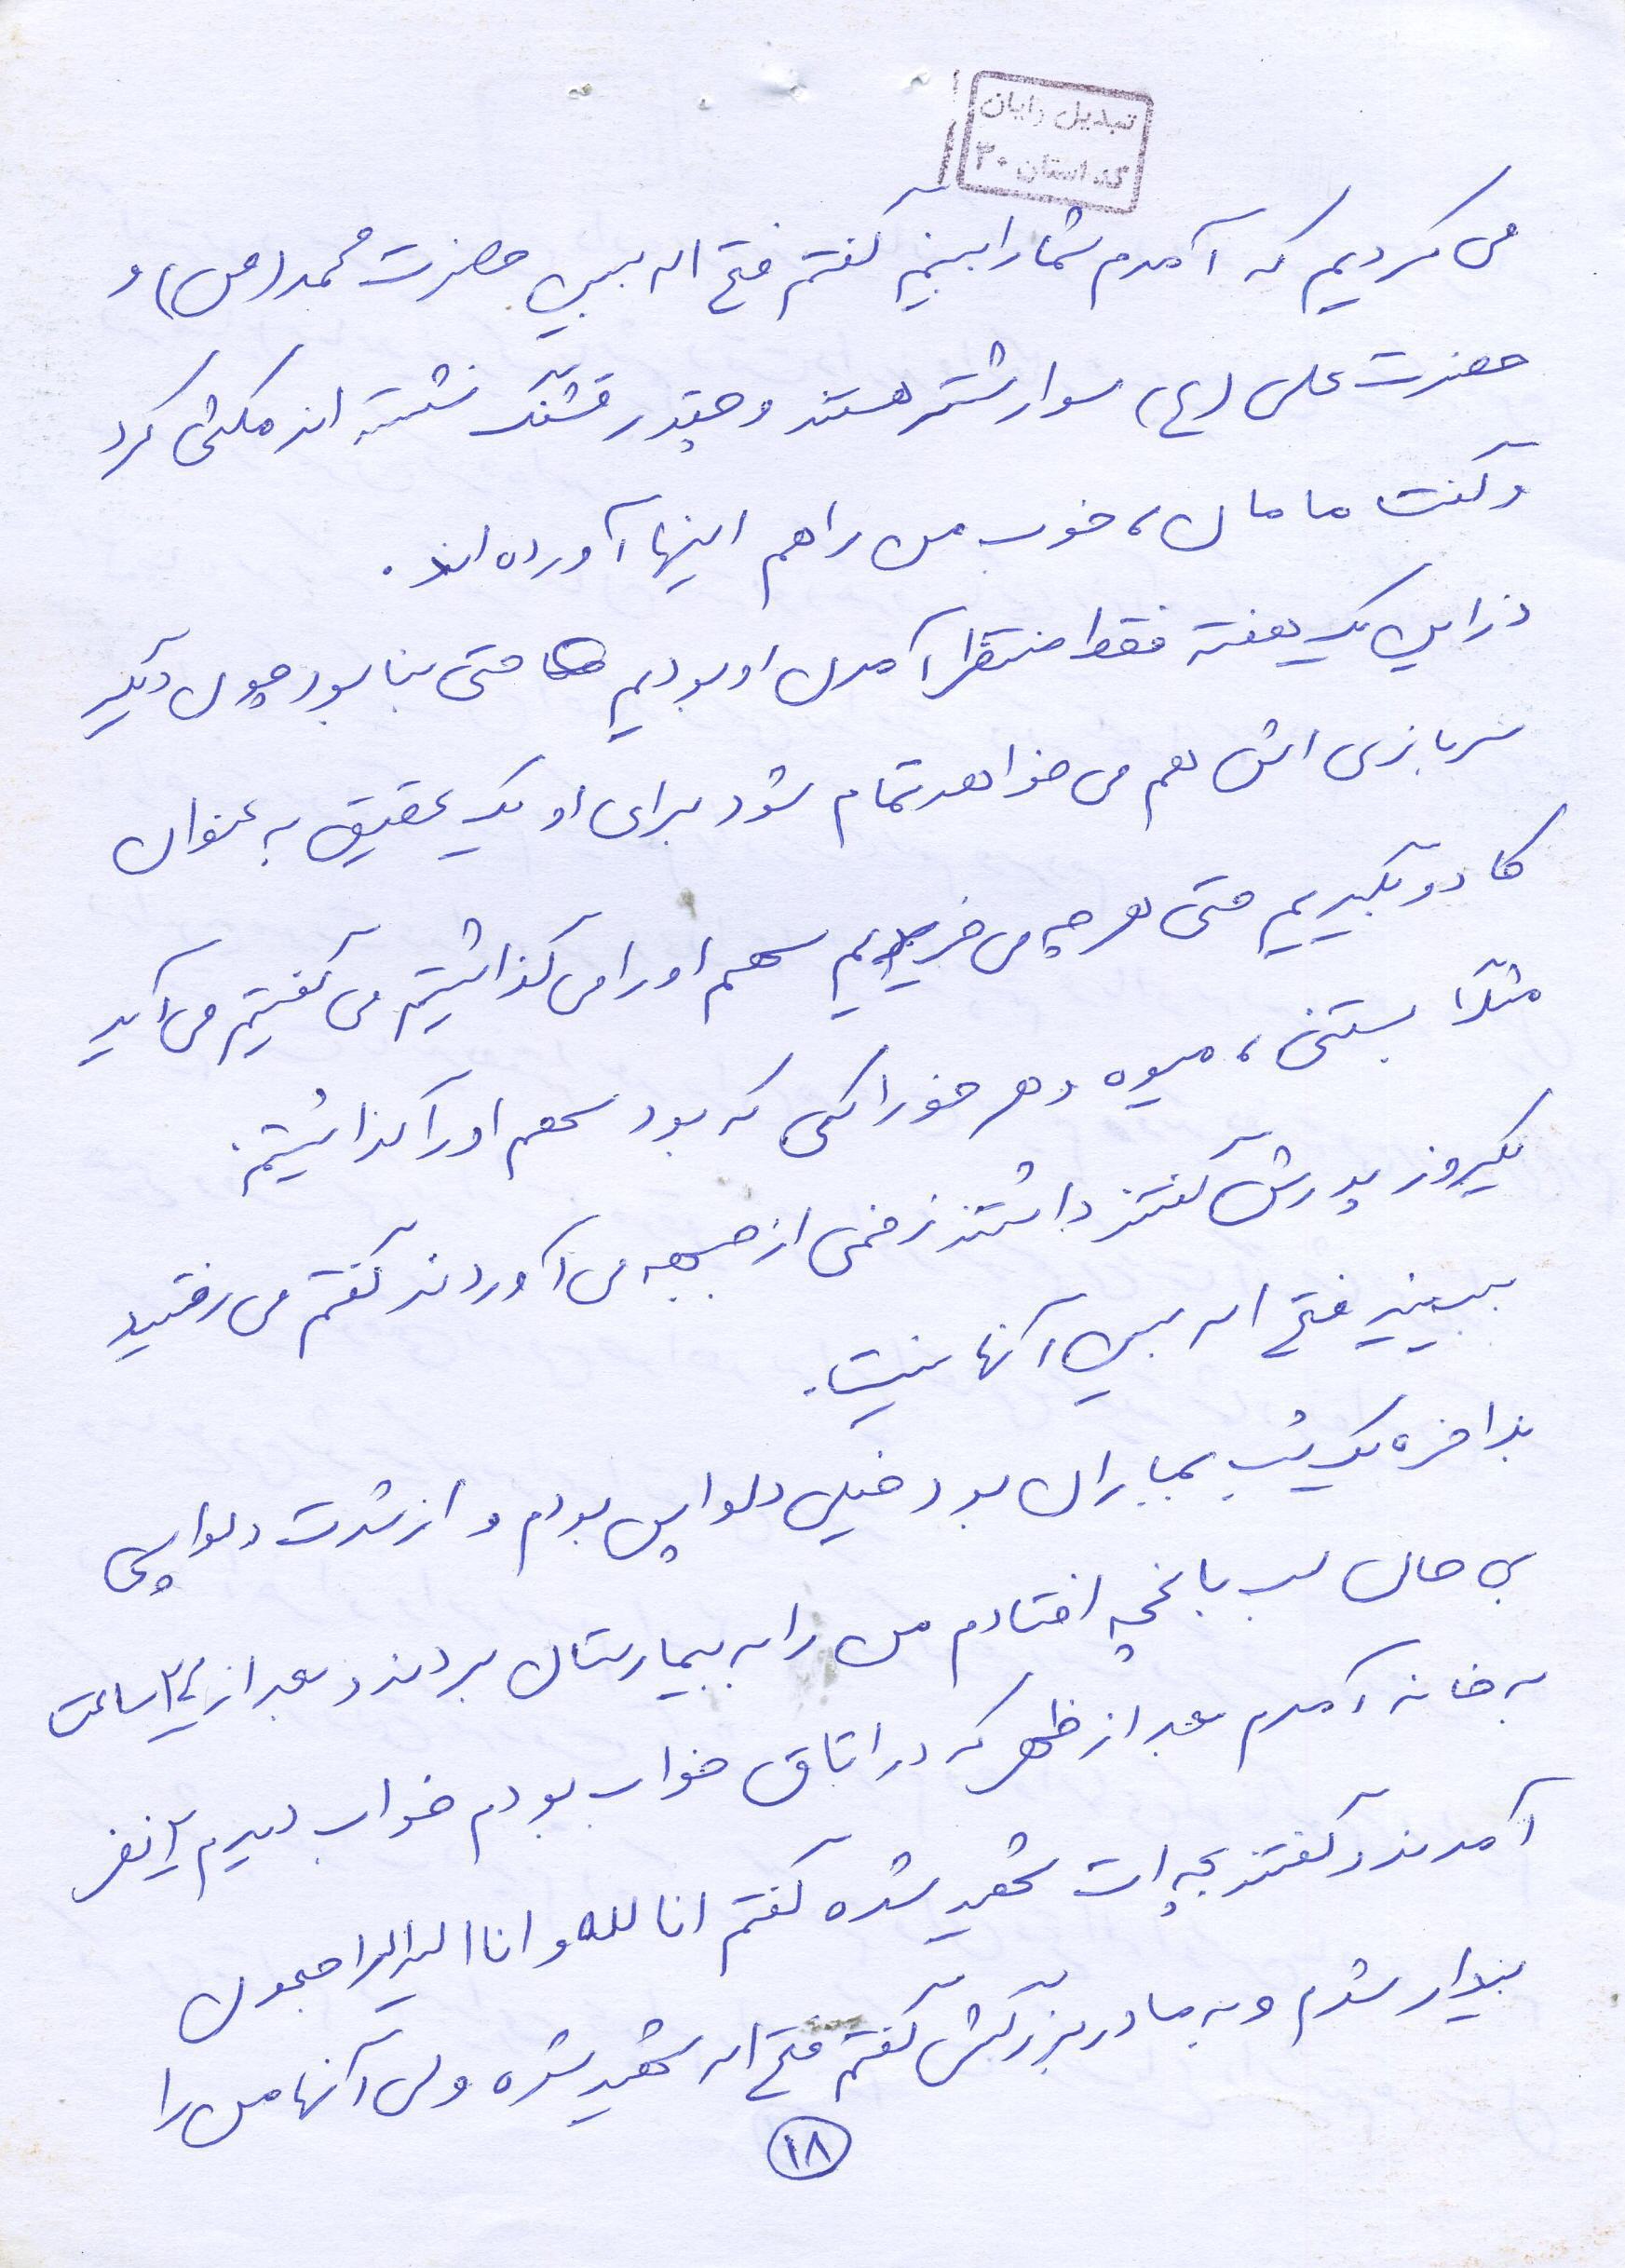 تبدیل رایان
کد استان ۳۰
می کردیم که آمدم شما را ببینم گفتم فتح اله ببین حضرت محمد (ص) و
حضرت علی (ع) سوار شتر هستند و چقدر قشنگ نشسته اند مکثی کرد
و گفت مامان، خوب من را هم اینها آورده اند.
در این یک هفته فقط منتظر آمدن او بودیم حتی بنا بود چون دیگر
سربازی اش هم می خواهد تمام شود برای او یک عقیق به عنوان
کادو بگیریم حتی هر چه می خریدیم سهم او را می گذاشتیم می گفتیم می آید
مثلاً بستنی، میوه و هر خوراکی که بود سهم او را گذاشتیم.
یکروز پدرش گفتند داشتند زخمی از جبهه می آوردند گفتم می رفتید
ببینید فتح اله بین آنها نیست.
بلاخره یک شب بمباران بود خیلی دلواپس بودم و از شدت دلواپسی
بی حال لب باغچه افتادم من را به بیمارستان بردند و بعد از ساعت
به خانه آمدم بعد از ظهر که در اتاق خواب بودم خواب دیدم ۲ نفر
آمدند و گفتند بچه ات شهید شده گفتم انا لله و انا الیه الراجعون
بیدار شدم و به مادر بزرگش گفتم فتح اله شهید شده ولی آنها من را
۱۸